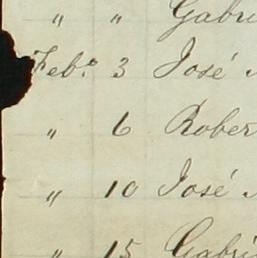 " " Gabri
Feb.º 3 José
" 6 Rober
" 10 José
" 15 Gabri